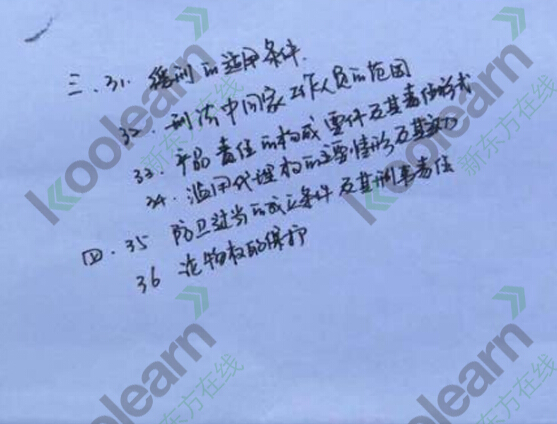 三.31. 缓刑的适用条件.
32. 刑法中国家工作人员的范围
33. 产品责任的构成要件及其责任形式
34. 滥用代理权的主要情形及其效力
四.35 防卫过当的成立条件及其刑事责任
36 论物权的保护
koolearn
新东方在线
koolearn
新东方在线
koolearn
新东方在线
koolearn
新东方在线